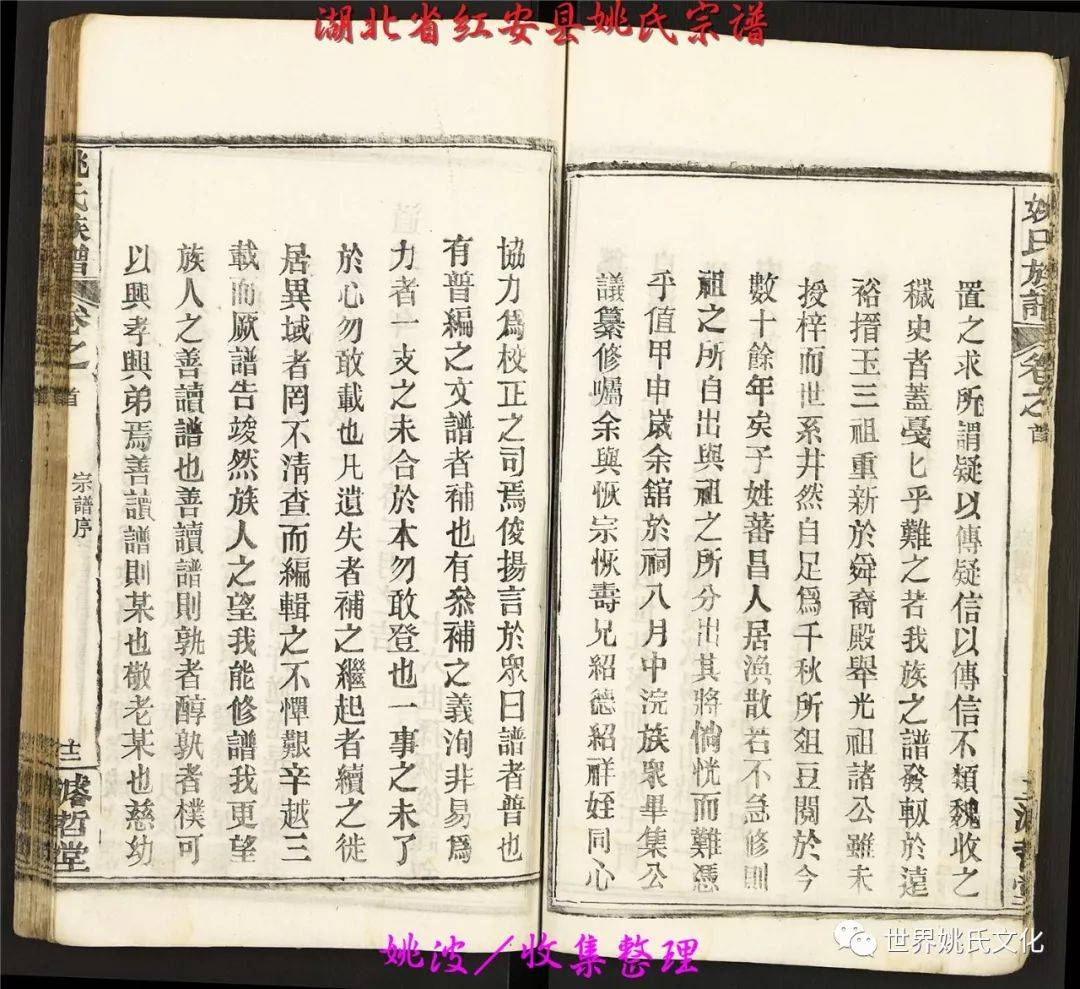 湖北省红安县姚氏宗谱
姚氏族譜
卷之首
置之求所謂疑以傳疑信以傳信不類魏收之
穢史者蓋戞匕乎難之若我族之譜發軔於遠
裕搢玉三祖重新於舜裔殿舉光祖諸公雖未
授梓而世系井然自足爲千秋所爼豆閱於今
數十餘年矣子姓蕃昌人居渙散若不急修則
祖之所自出與祖之所分出其將惝恍而難憑
乎值甲申嵗余舘於祠八月中浣族眾畢集公
議纂修囑余與恢宗恢壽兄紹德紹祥姪同心
協力爲校正之司焉俊揚言於眾曰譜者普也
有普編之文譜者補也有叅補之義洵非易爲
力者一支之未合於本勿敢登也一事之未了
於心勿敢載也凡遺失者補之繼起者續之徙
居異域者罔不清查而編輯之不憚艱辛越三
載而厥譜告竣然族人之望我能修譜我更望
族人之善讀譜也善讀譜則孰者醇孰者樸可
以興孝興弟焉善讀譜則某也敬老某也慈幼
姚氏族譜
卷之首
宗譜序
十二
濬哲堂
姚波／收集整理
世界姚氏文化